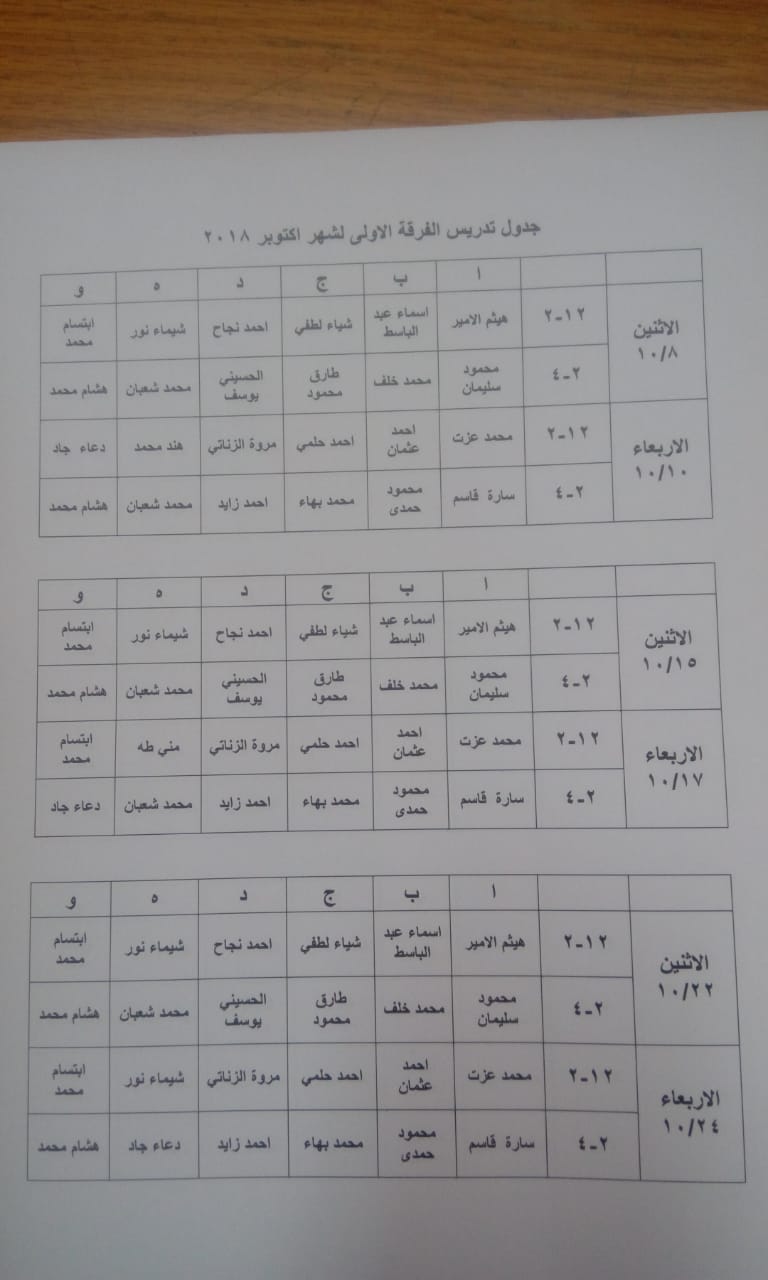 جدول تدريس الفرقة الاولى لشهر اكتوبر ٢٠١٨
ا ب ج د ه و
الاثنين ١٠/٨
١٢-٢ هيثم الامير اسماء عبد الباسط شياء لطفي احمد نجاح شيماء نور ابتسام محمد
٢-٤ محمود سليمان محمد خلف طارق محمود الحسيني يوسف محمد شعبان هشام محمد
الاربعاء ١٠/١٠
١٢-٢ محمد عزت احمد عثمان احمد حلمي مروة الزناتي هند محمد دعاء جاد
٢-٤ سارة قاسم محمود حمدى محمد بهاء احمد زايد محمد شعبان هشام محمد
ا ب ج د ه و
الاثنين ١٠/١٥
١٢-٢ هيثم الامير اسماء عبد الباسط شياء لطفي احمد نجاح شيماء نور ابتسام محمد
٢-٤ محمود سليمان محمد خلف طارق محمود الحسيني يوسف محمد شعبان هشام محمد
الاربعاء ١٠/١٧
١٢-٢ محمد عزت احمد عثمان احمد حلمي مروة الزناتي مني طه ابتسام محمد
٢-٤ سارة قاسم محمود حمدى محمد بهاء احمد زايد محمد شعبان دعاء جاد
ا ب ج د ه و
الاثنين ١٠/٢٢
١٢-٢ هيثم الامير اسماء عبد الباسط شياء لطفي احمد نجاح شيماء نور ابتسام محمد
٢-٤ محمود سليمان محمد خلف طارق محمود الحسيني يوسف محمد شعبان هشام محمد
الاربعاء ١٠/٢٤
١٢-٢ محمد عزت احمد عثمان احمد حلمي مروة الزناتي شيماء نور ابتسام محمد
٢-٤ سارة قاسم محمود حمدى محمد بهاء احمد زايد دعاء جاد هشام محمد